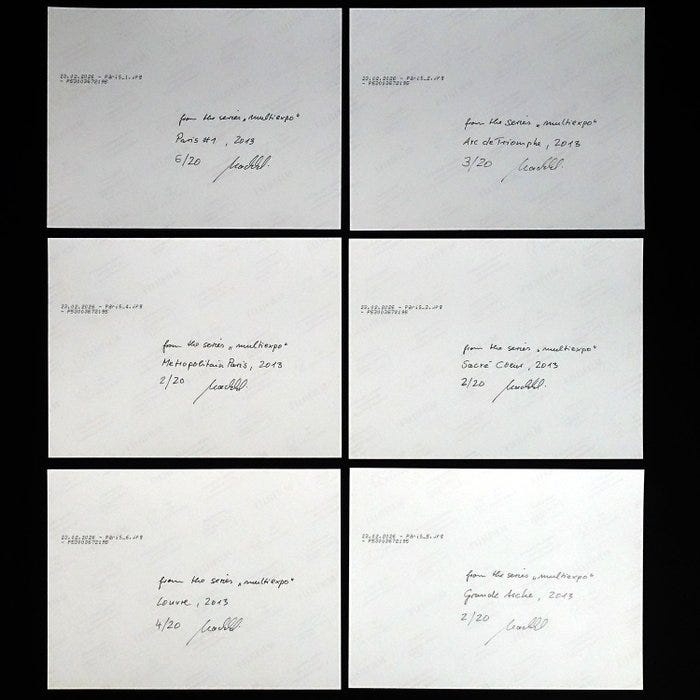 23.02.2026 - Paris_1.JPG
- PS3003672195
from the series „multiexpo“
Paris #1 , 2013
6/20
23.02.2026 - Paris_2.JPG
- PS3003672195
from the series „multiexpo“
Arc de Triomphe , 2013
3/20
23.02.2026 - Paris_4.JPG
- PS3003672195
from the series „multiexpo“
Metropolitain Paris , 2013
2/20
23.02.2026 - Paris_3.JPG
- PS3003672195
from the series „multiexpo“
Sacré Coeur , 2013
2/20
23.02.2026 - Paris_6.JPG
- PS3003672195
from the series „multiexpo“
Louvre , 2013
4/20
23.02.2026 - Paris_5.JPG
- PS3003672195
from the series „multiexpo“
Grande Arche , 2013
2/20